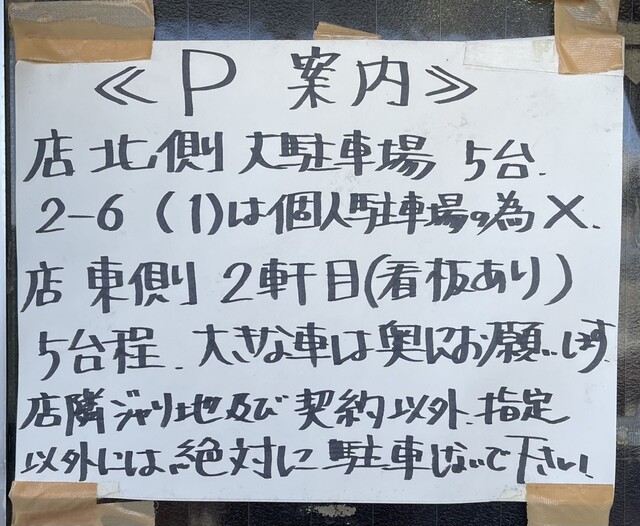 ≪P 案内≫
店北側 大駐車場 5台.
2-6 (1)は個人駐車場の為×.
店東側 2軒目(看板あり)
5台程. 大きな車は奥にお願いします.
店隣ジャリ地及び契約以外.指定
以外には、絶対に駐車しないで下さい.